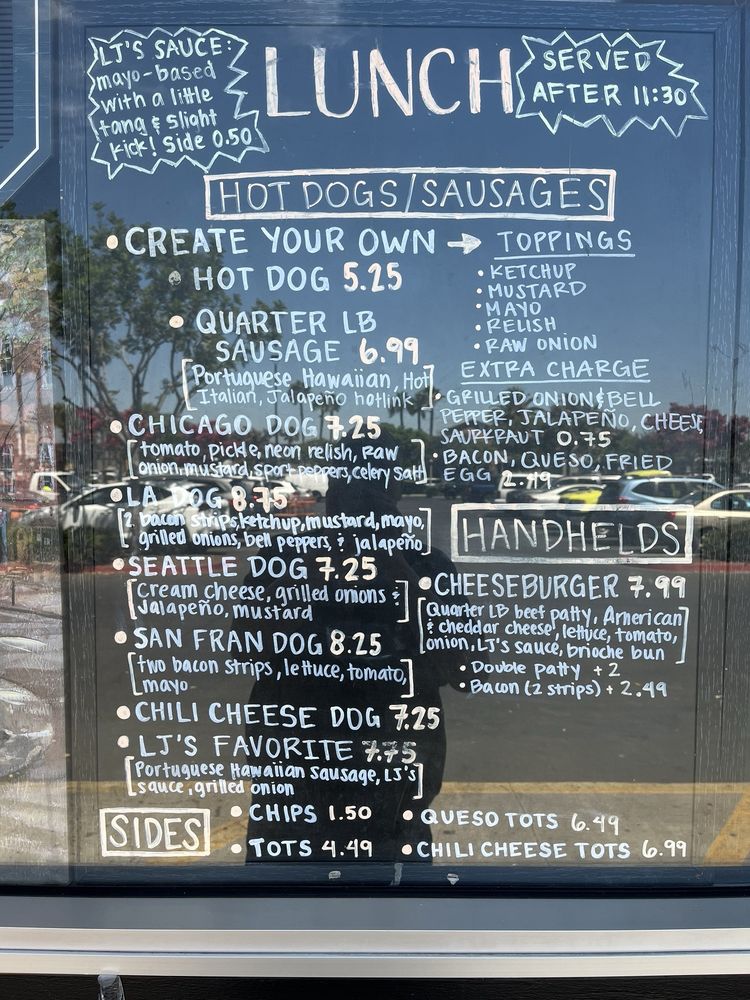 LJ'S SAUCE:
mayo-based
with a little
tang & slight
kick! Side 0.50
LUNCH
SERVED
AFTER 11:30
HOT DOGS/SAUSAGES
• CREATE YOUR OWN →
• HOT DOG 5.25
• QUARTER LB
SAUSAGE 6.99
[Portuguese Hawaiian, Hot
Italian, Jalapeño hotlink]
• CHICAGO DOG 7.25
[tomato, pickle, neon relish, raw
onion, mustard, sport peppers, celery salt]
• LA DOG 8.75
[2 bacon strips, ketchup, mustard, mayo,
grilled onions, bell peppers, & jalapeño]
• SEATTLE DOG 7.25
[Cream cheese, grilled onions &
Jalapeño, mustard]
• SAN FRAN DOG 8.25
[two bacon strips, lettuce, tomato,
mayo]
• CHILI CHEESE DOG 7.25
• LJ'S FAVORITE 7.75
[Portuguese Hawaiian sausage, LJ's
sauce, grilled onion]
TOPPINGS
• KETCHUP
• MUSTARD
• MAYO
• RELISH
• RAW ONION
EXTRA CHARGE
• GRILLED ONION & BELL
PEPPER, JALAPEÑO, CHEESE
SAURKRAUT 0.75
• BACON, QUESO, FRIED
EGG 2.49
HANDHELDS
• CHEESEBURGER 7.99
[Quarter LB beef patty, American
& cheddar cheese, lettuce, tomato,
onion, LJ's sauce, brioche bun]
• Double patty +2
• Bacon (2 strips) + 2.49
SIDES
• CHIPS 1.50
• TOTS 4.49
• QUESO TOTS 6.49
• CHILI CHEESE TOTS 6.99